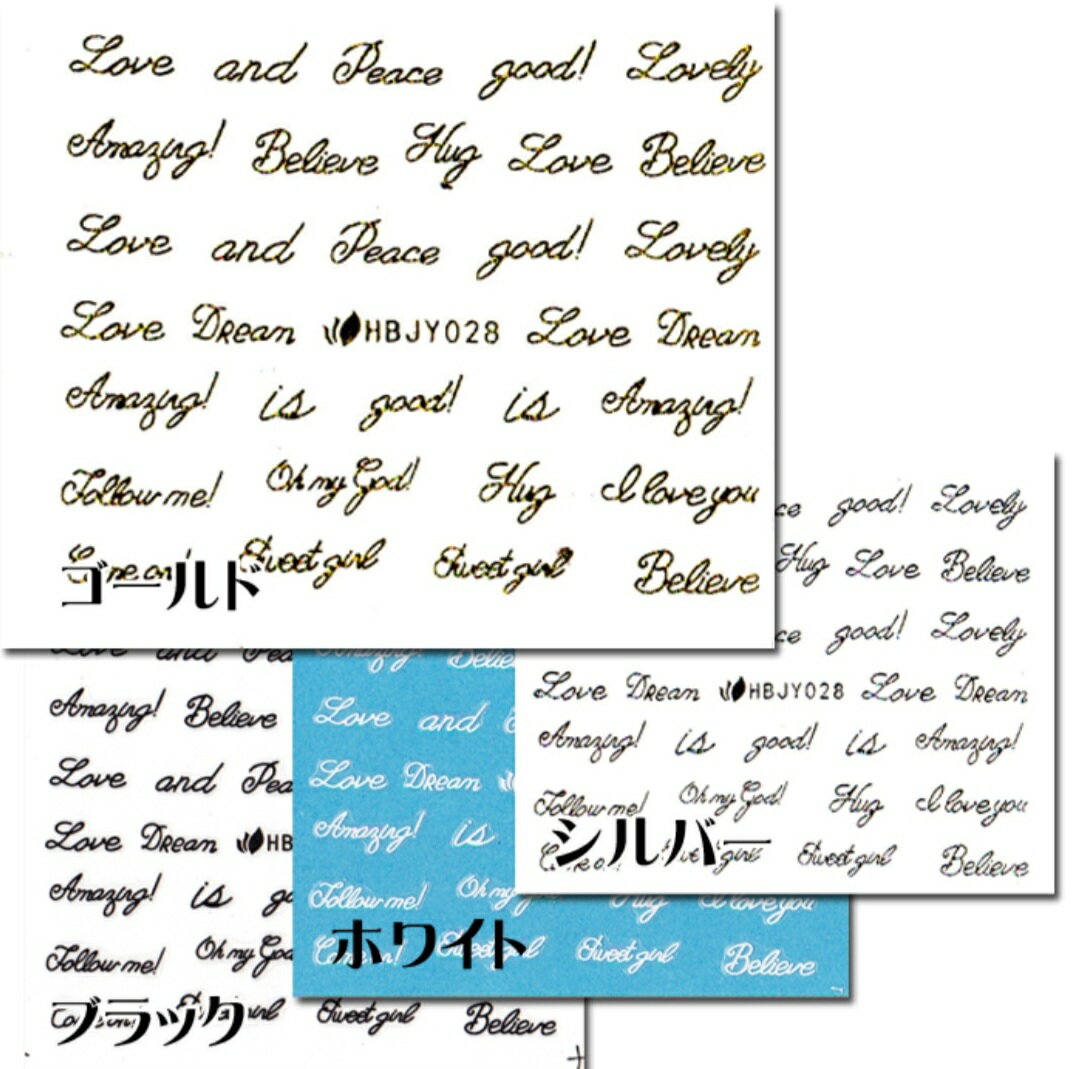 Love and Peace good! Lovely
Amazing! Believe Hug Love Believe
Love and Peace good! Lovely
Love Dream HBJY028 Love Dream
Amazing! is good! is Amazing!
Follow me! Oh my God! Hug I love you
Come on! Sweet girl Sweet girl Believe
ゴールド
ce good! Lovely
Hug Love Believe
ce good! Lovely
Love Dream HBJY028 Love Dream
Amazing! is good! is Amazing!
Follow me! Oh my God! Hug I love you
Come on! Sweet girl Sweet girl Believe
シルバー
Amazing! Believe
Love and
Love Dream
Amazing! is
Follow me! Oh my God! Hug I love you
Come on! Sweet girl Sweet girl Believe
ホワイト
Love and Pea
Amazing! Believe
Love and Pea
Love Dream HB
Amazing! is go
Follow me! Oh my God
Come on! Sweet girl Sweet girl Believe
ブラック